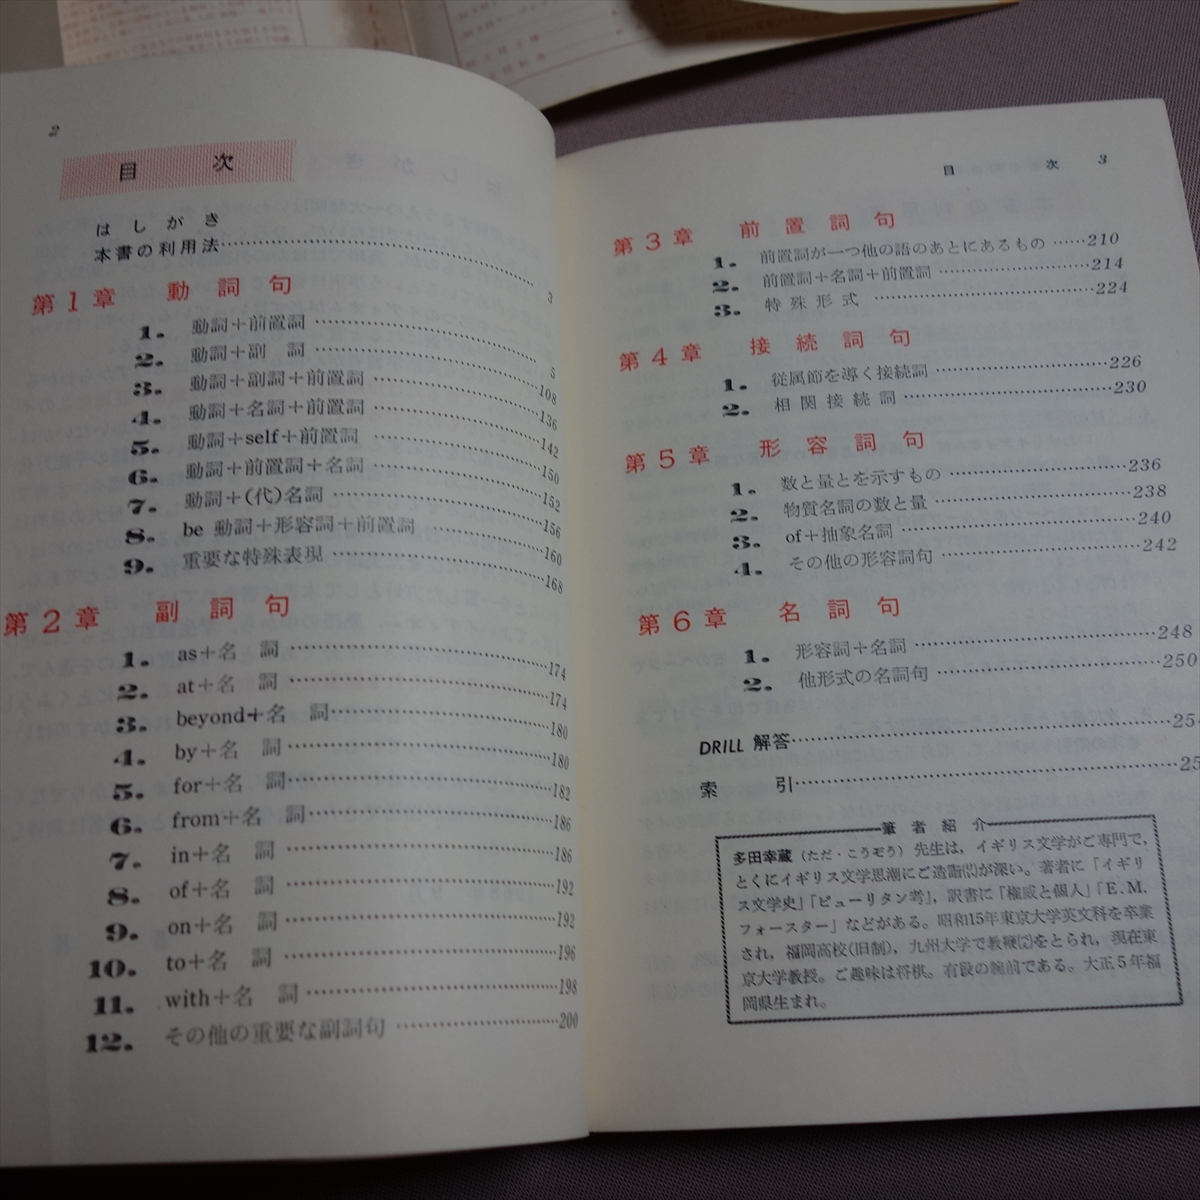 2
目 次
はしがき
本書の利用法 3
第1章 動詞句
1. 動詞+前置詞 5
2. 動詞+副詞 108
3. 動詞+副詞+前置詞 136
4. 動詞+名詞+前置詞 142
5. 動詞+self+前置詞 150
6. 動詞+前置詞+名詞 152
7. 動詞+(代)名詞 156
8. be 動詞+形容詞+前置詞 160
9. 重要な特殊表現 168
第2章 副詞句
1. as+名詞 174
2. at+名詞 174
3. beyond+名詞 180
4. by+名詞 180
5. for+名詞 182
6. from+名詞 186
7. in+名詞 186
8. of+名詞 192
9. on+名詞 192
10. to+名詞 196
11. with+名詞 198
12. その他の重要な副詞句 200
目 次 3
第3章 前置詞句
1. 前置詞が一つ他の語のあとにあるもの 210
2. 前置詞+名詞+前置詞 214
3. 特殊形式 224
第4章 接続詞句
1. 従属節を導く接続詞 226
2. 相関接続詞 230
第5章 形容詞句
1. 数と量とを示すもの 236
2. 物質名詞の数と量 238
3. of+抽象名詞 240
4. その他の形容詞句 242
第6章 名詞句
1. 形容詞+名詞 248
2. 他形式の名詞句 250
DRILL 解答 25
索 引 25
筆者紹介
多田幸蔵(ただ・こうぞう)先生は,イギリス文学がご専門で,
とくにイギリス文学思潮にご造詣(ﾋﾞ)が深い。著者に「イギリ
ス文学史」「ピューリタン考」,訳書に「権威と個人」「E.M.
フォースター」などがある。昭和15年東京大学英文科を卒業
され,福岡高校(旧制),九州大学で教鞭をとられ,現在東
京大学教授。ご趣味は将棋。有段の腕前である。大正5年福
岡県生まれ。